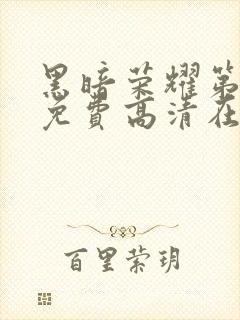 黑暗荣耀第
免费高清在
百里荣玥